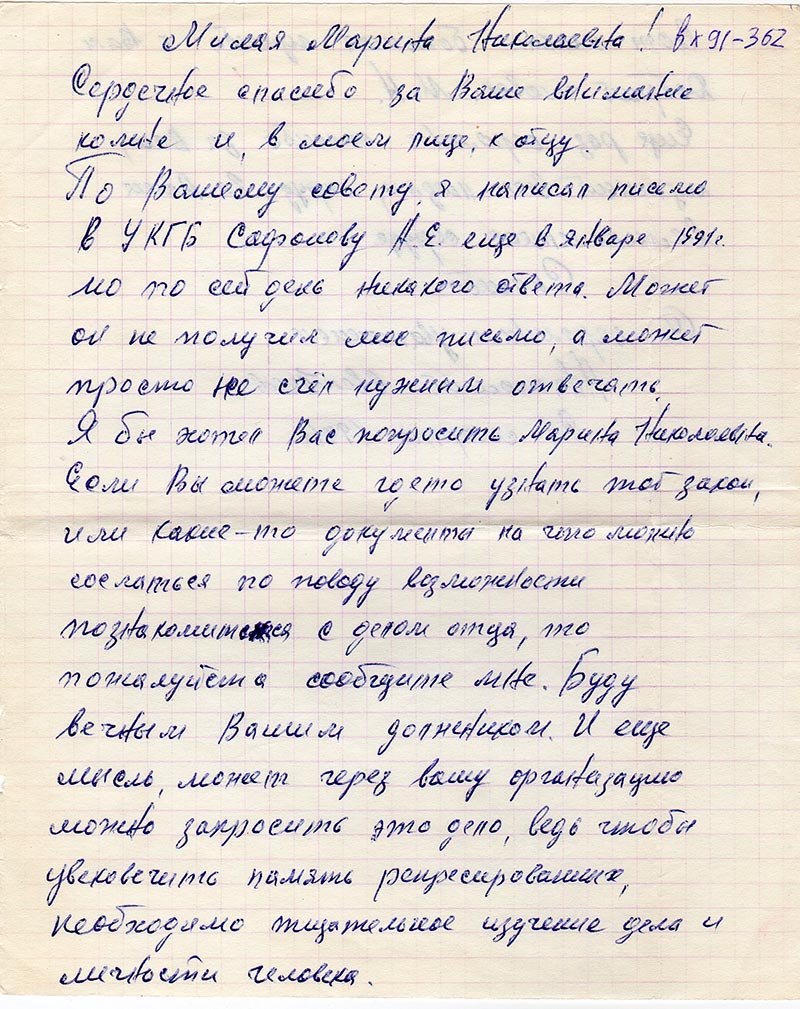 Милая Марина Николаевна! Вх 91-362
Сердечное спасибо за Ваше внимание
ко мне и, в моем лице, к отцу
По Вашему совету, я написал письмо
в УКГБ Сафонову А.Е. еще в январе 1991г.
но по сей день никакого ответа. Может
он не получил мое письмо, а может
просто не счёл нужным отвечать.
Я бы хотел Вас попросить Марина Николаевна.
Если Вы можете где то узнать тот закон,
или какие-то документы на что можно
сослаться по поводу возможности
познакомиться с делом отца, то
пожалуйста сообщите мне. Буду
вечным Вашим должником. И еще
мысль, может через вашу организацию
можно запросить это дело, ведь чтобы
увековечить память репресированных,
необходимо тщательное изучение дела и
личности человека.